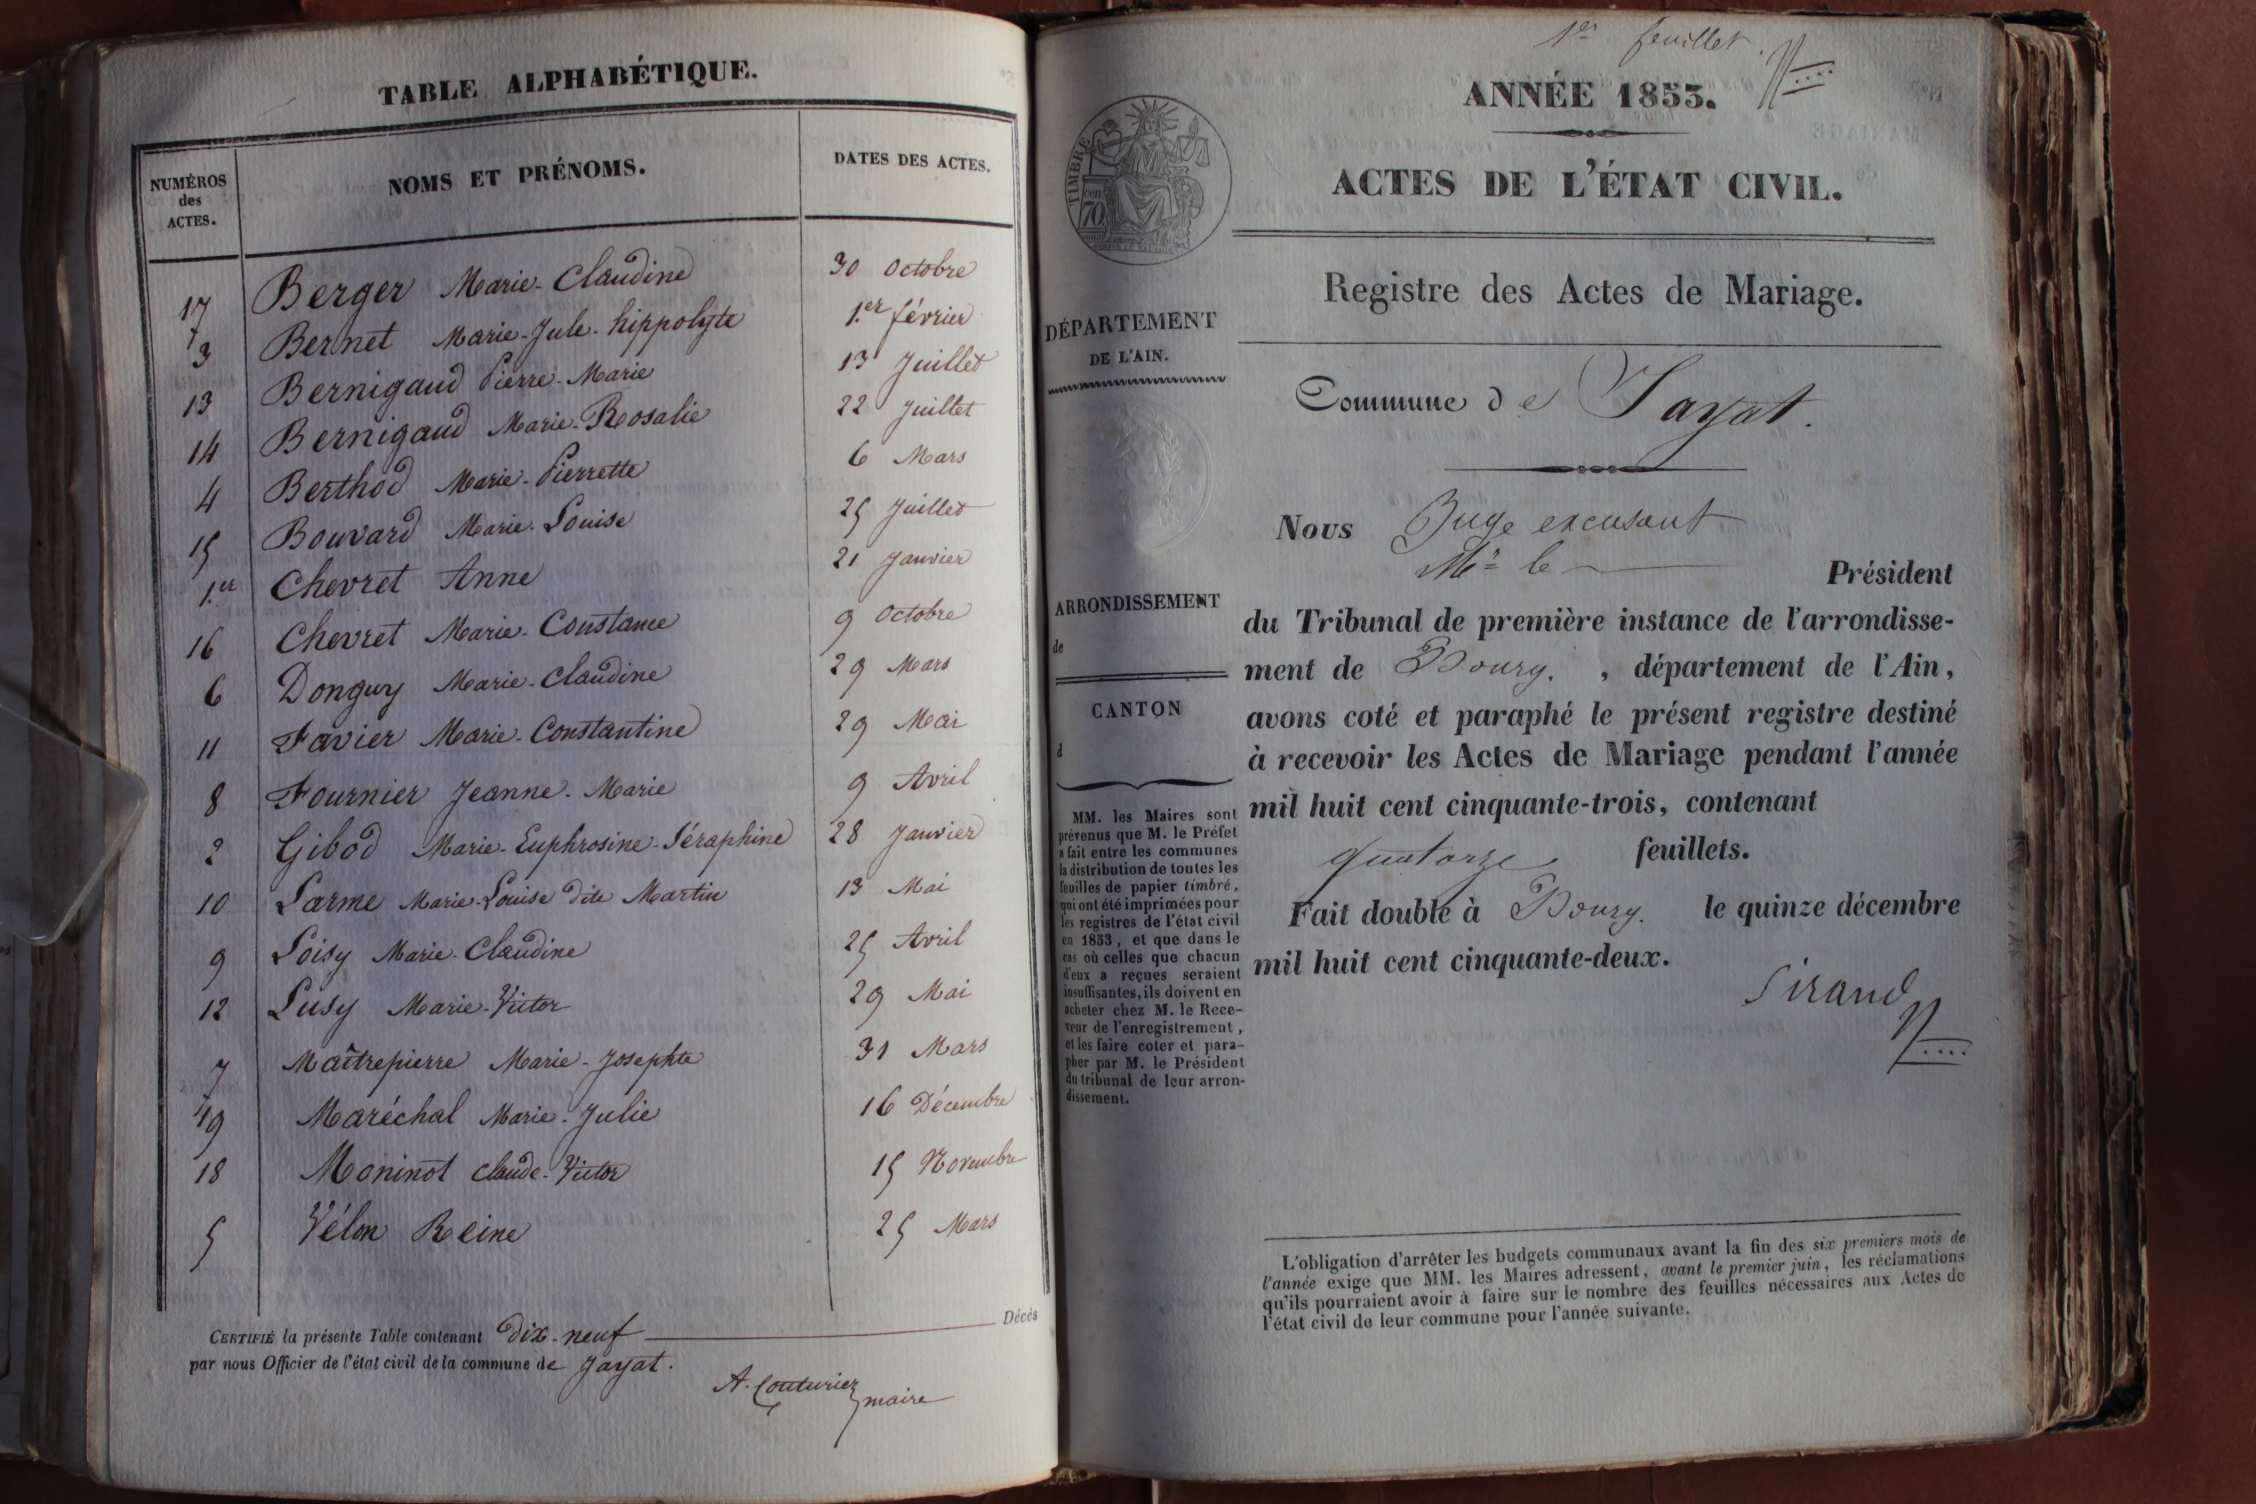 TABLE ALPHABÉTIQUE.
NUMÉROS des ACTES.
NOMS ET PRÉNOMS.
DATES DES ACTES.
17 Berger Marie-Claudine 30 Octobre
3 Bernet Marie-Jule-hippolyte 1.er février
13 Bernigaud Pierre-Marie 13 Juillet
14 Bernigaud Marie-Rosalie 22 Juillet
4 Berthod Marie-Pierrette 6 Mars
15 Bouvard Marie-Louise 25 Juillet
1.er Chevret Anne 21 Janvier
16 Chevret Marie-Constance 9 Octobre
6 Donguy Marie-Claudine 29 Mars
11 Favier Marie-Constantine 29 Mai
8 Fournier Jeanne-Marie 9 Avril
2 Gibod Marie-Euphrosine-Séraphine 28 Janvier
10 Larme Marie-Louise dite Martin 13 Mai
9 Loisy Marie-Claudine 25 Avril
12 Lusy Marie-Victor 29 Mai
7 Maîtrepierre Marie-Josephte 31 Mars
19 Maréchal Marie-Julie 16 Décembre
18 Moninot Claude-Victor 15 Novembre
5 Vélon Reine 25 Mars
CERTIFIÉ la présente Table contenant Dix-neuf Décès
par nous Officier de l'état civil de la commune de Jayat.
A. Couturier maire
1er feuillet.
ANNÉE 1853.
ACTES DE L'ÉTAT CIVIL.
TIMBRE
70
Registre des Actes de Mariage.
DÉPARTEMENT
DE L'AIN.
Commune de Jayat.
Nous Juge excusant
Mr le Président
ARRONDISSEMENT
de
CANTON
d
du Tribunal de première instance de l'arrondisse-
ment de Bourg. , département de l'Ain,
avons coté et paraphé le présent registre destiné
à recevoir les Actes de Mariage pendant l'année
mil huit cent cinquante-trois, contenant
quatorze feuillets.
Fait double à Bourg. le quinze décembre
mil huit cent cinquante-deux.
Sirand
MM. les Maires sont
prévenus que M. le Préfet
a fait entre les communes
la distribution de toutes les
feuilles de papier timbré,
qui ont été imprimées pour
les registres de l'état civil
en 1853, et que dans le
cas où celles que chacun
d'eux a reçues seraient
insuffisantes, ils doivent en
acheter chez M. le Rece-
veur de l'enregistrement,
et les faire coter et para-
pher par M. le Président
du tribunal de leur arron-
dissement.
L'obligation d'arrêter les budgets communaux avant la fin des six premiers mois de
l'année exige que MM. les Maires adressent, avant le premier juin, les réclamations
qu'ils pourraient avoir à faire sur le nombre des feuilles nécessaires aux Actes de
l'état civil de leur commune pour l'année suivante.